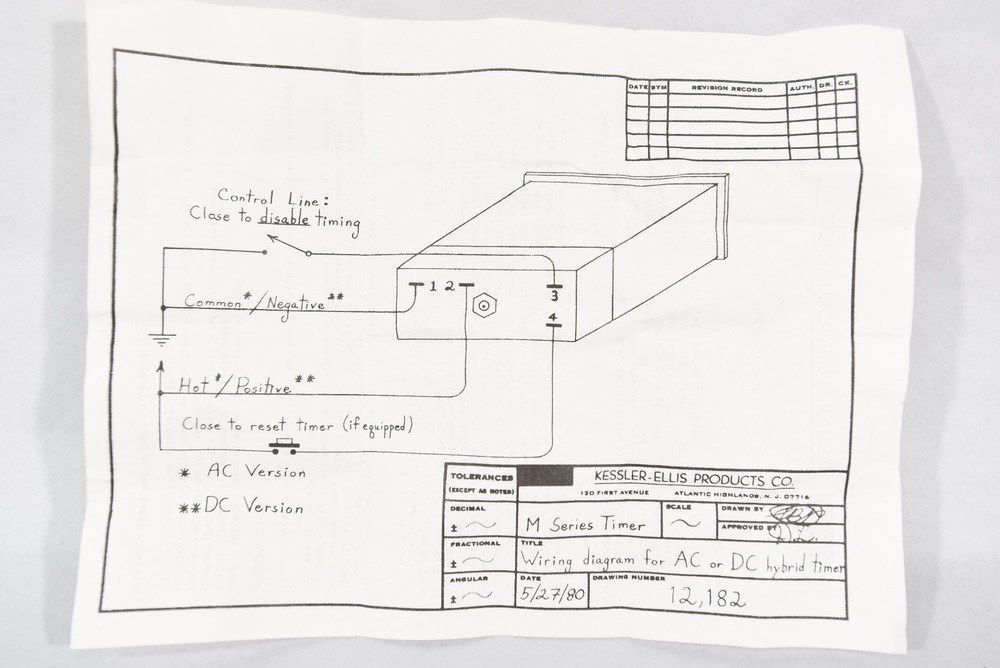 DATE SYM REVISION RECORD AUTH. DR. CK.
Control Line:
Close to disable timing
1 2
3
4
Common*/Negative**
Hot*/Positive**
Close to reset timer (if equipped)
* AC Version
** DC Version
TOLERANCES
(EXCEPT AS NOTED)
KESSLER-ELLIS PRODUCTS CO.
120 FIRST AVENUE ATLANTIC HIGHLANDS, N. J. 07716
DECIMAL
±
M Series Timer
SCALE
DRAWN BY
APPROVED BY
FRACTIONAL
±
TITLE
Wiring diagram for AC or DC hybrid timer
ANGULAR
±
DATE
5/27/80
DRAWING NUMBER
12,182